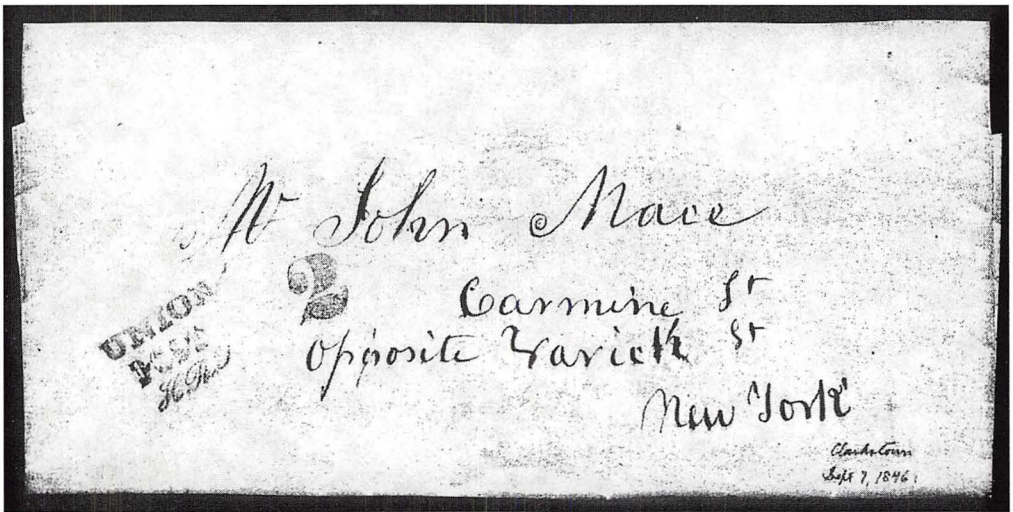 Mr John Mace
2
Carmine St
opposite Varick St
New York
UNION
POST
Clarkstown
Sept 7, 1846